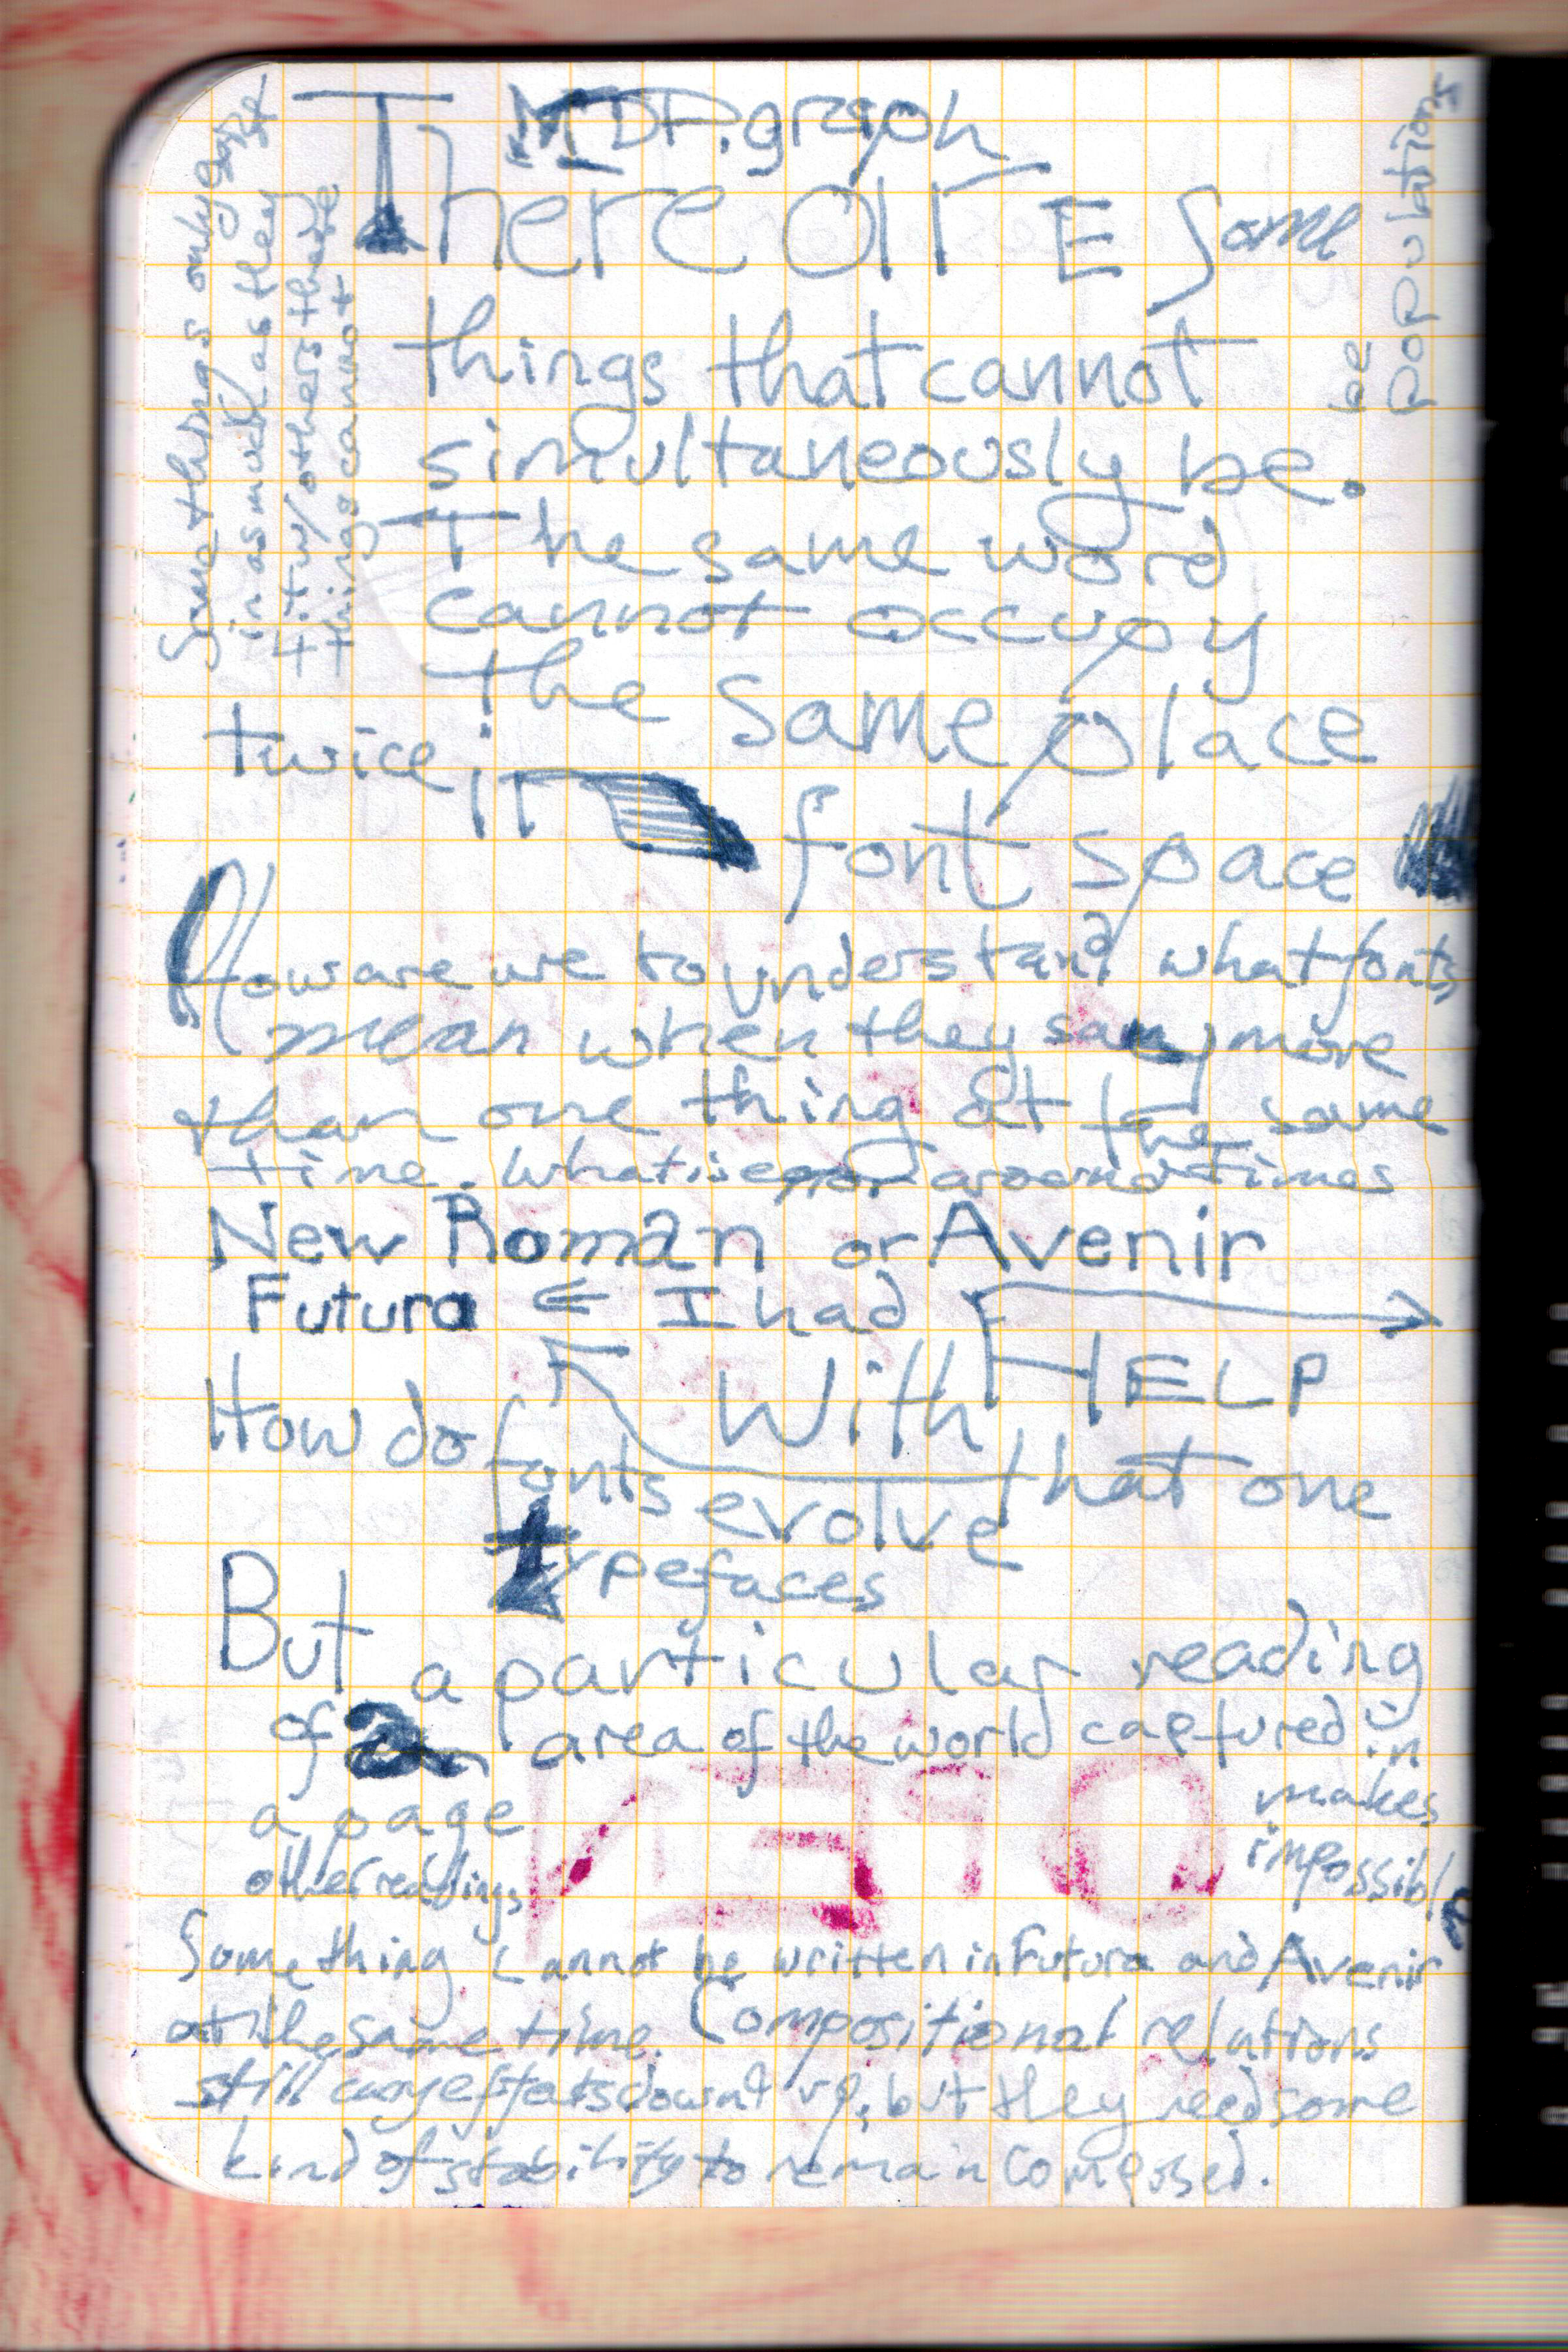 MDP.graph
There arE some
things that cannot
simultaneously be.
The same word
cannot occupy
the same place
twice in
font space
How are we to understand what fonts
mean when they say more
than one thing at the same
time. What is around times
New Roman or Avenir
Futura ← I had
HELP
With
that one
How do
fonts evolve
typefaces
But a particular reading
of a area of the world captured in
a page
makes
impossible
other readings
Something cannot be written in Futura and Avenir
at the same time. Compositional relations
still carry effects down & up, but they need some
kind of stability to remain composed.
Some things only exist
in as much as they
fit w/ others there
things cannot
be
populations